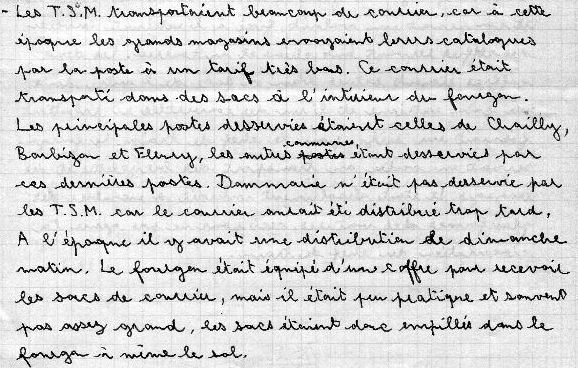 - Les T.S.M. transportaient beaucoup de courrier, car à cette
époque les grands magasins envoyaient leurs catalogues
par la poste à un tarif très bas. Ce courrier était
transporté dans des sacs à l'intérieur du fourgon.
Les principales postes desservies étaient celles de Chailly,
communes
Barbizon et Fleury, les autres postes étant desservies par
ces dernières postes. Dammarie n'était pas desservie par
les T.S.M. car le courrier aurait été distribué trop tard.
A l'époque il y avait une distribution le dimanche
matin. Le fourgon était équipé d'un coffre pour recevoir
les sacs de courrier, mais il était peu pratique et souvent
pas assez grand, les sacs étaient donc empillés dans le
fourgon à même le sol.